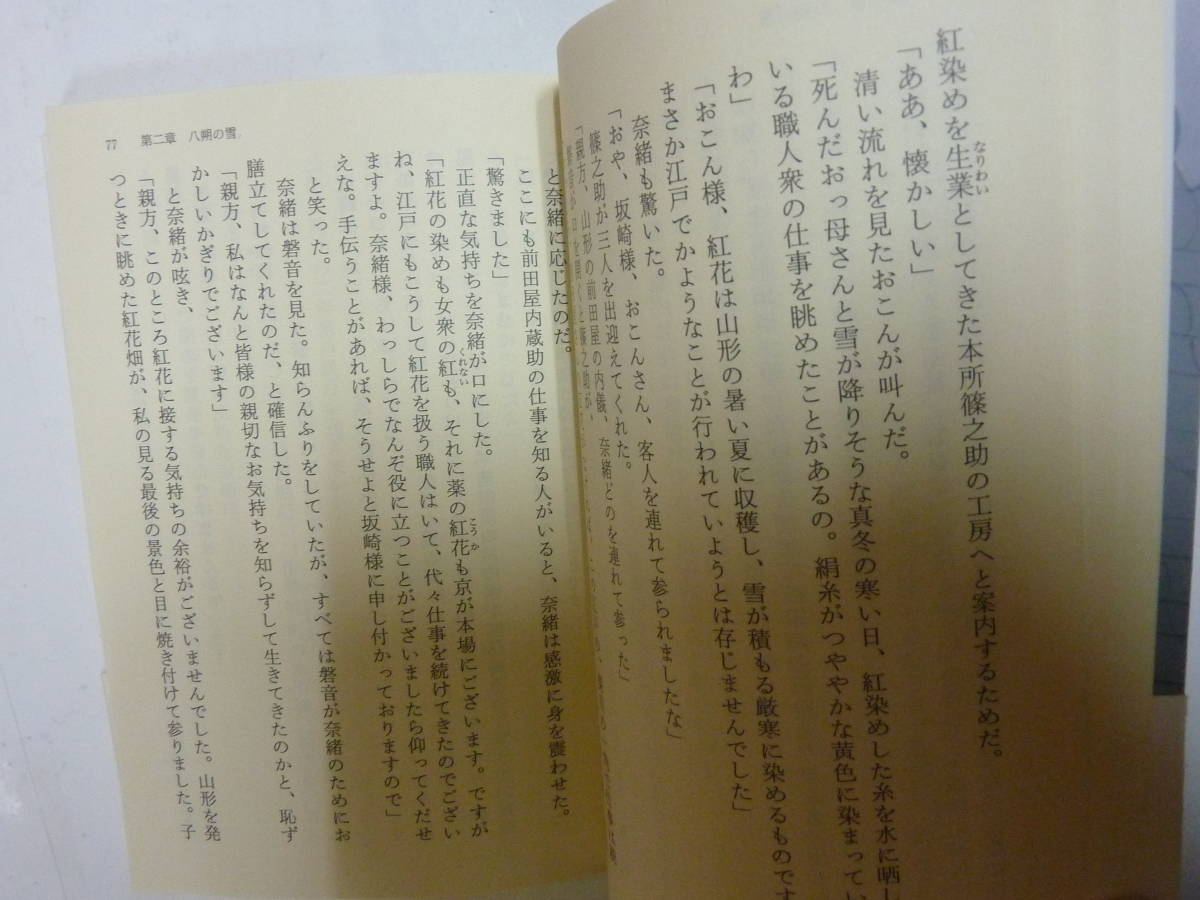 紅染めを生業としてきた本所篠之助の工房へと案内するためだ。
なりわい
「ああ、懐かしい」
清い流れを見たおこんが叫んだ。
「死んだおっ母さんと雪が降りそうな真冬の寒い日、紅染めした糸を水に晒し
いる職人衆の仕事を眺めたことがあるの。絹糸がつややかな黄色に染まってい
わ」
「おこん様、紅花は山形の暑い夏に収穫し、雪が積もる厳寒に染めるものです
まさか江戸でかようなことが行われていようとは存じませんでした」
奈緒も驚いた。
「おや、坂崎様、おこんさん、客人を連れて参られましたな」
篠之助が三人を出迎えてくれた。
「親方、山形の前田屋の内儀、奈緒どのを連れて参った」
77 第二章 八朔の雪
と奈緒に応じたのだ。
ここにも前田屋内蔵助の仕事を知る人がいると、奈緒は感激に身を震わせた。
「驚きました」
正直な気持ちを奈緒が口にした。
「紅花の染めも女衆の紅も、それに薬の紅花も京が本場にございます。ですが
くれない
こうか
ね、江戸にもこうして紅花を扱う職人はいて、代々仕事を続けてきたのでござい
ますよ。奈緒様、わっしらでなんぞ役に立つことがございましたら仰ってくだせ
えな。手伝うことがあれば、そうせよと坂崎様に申し付かっておりますので」
と笑った。
奈緒は磐音を見た。知らんふりをしていたが、すべては磐音が奈緒のためにお
膳立てしてくれたのだ、と確信した。
「親方、私はなんと皆様の親切なお気持ちを知らずして生きてきたのかと、恥ず
かしいかぎりでございます」
と奈緒が呟き、
「親方、このところ紅花に接する気持ちの余裕がございませんでした。山形を発
つときに眺めた紅花畑が、私の見る最後の景色と目に焼き付けて参りました。子